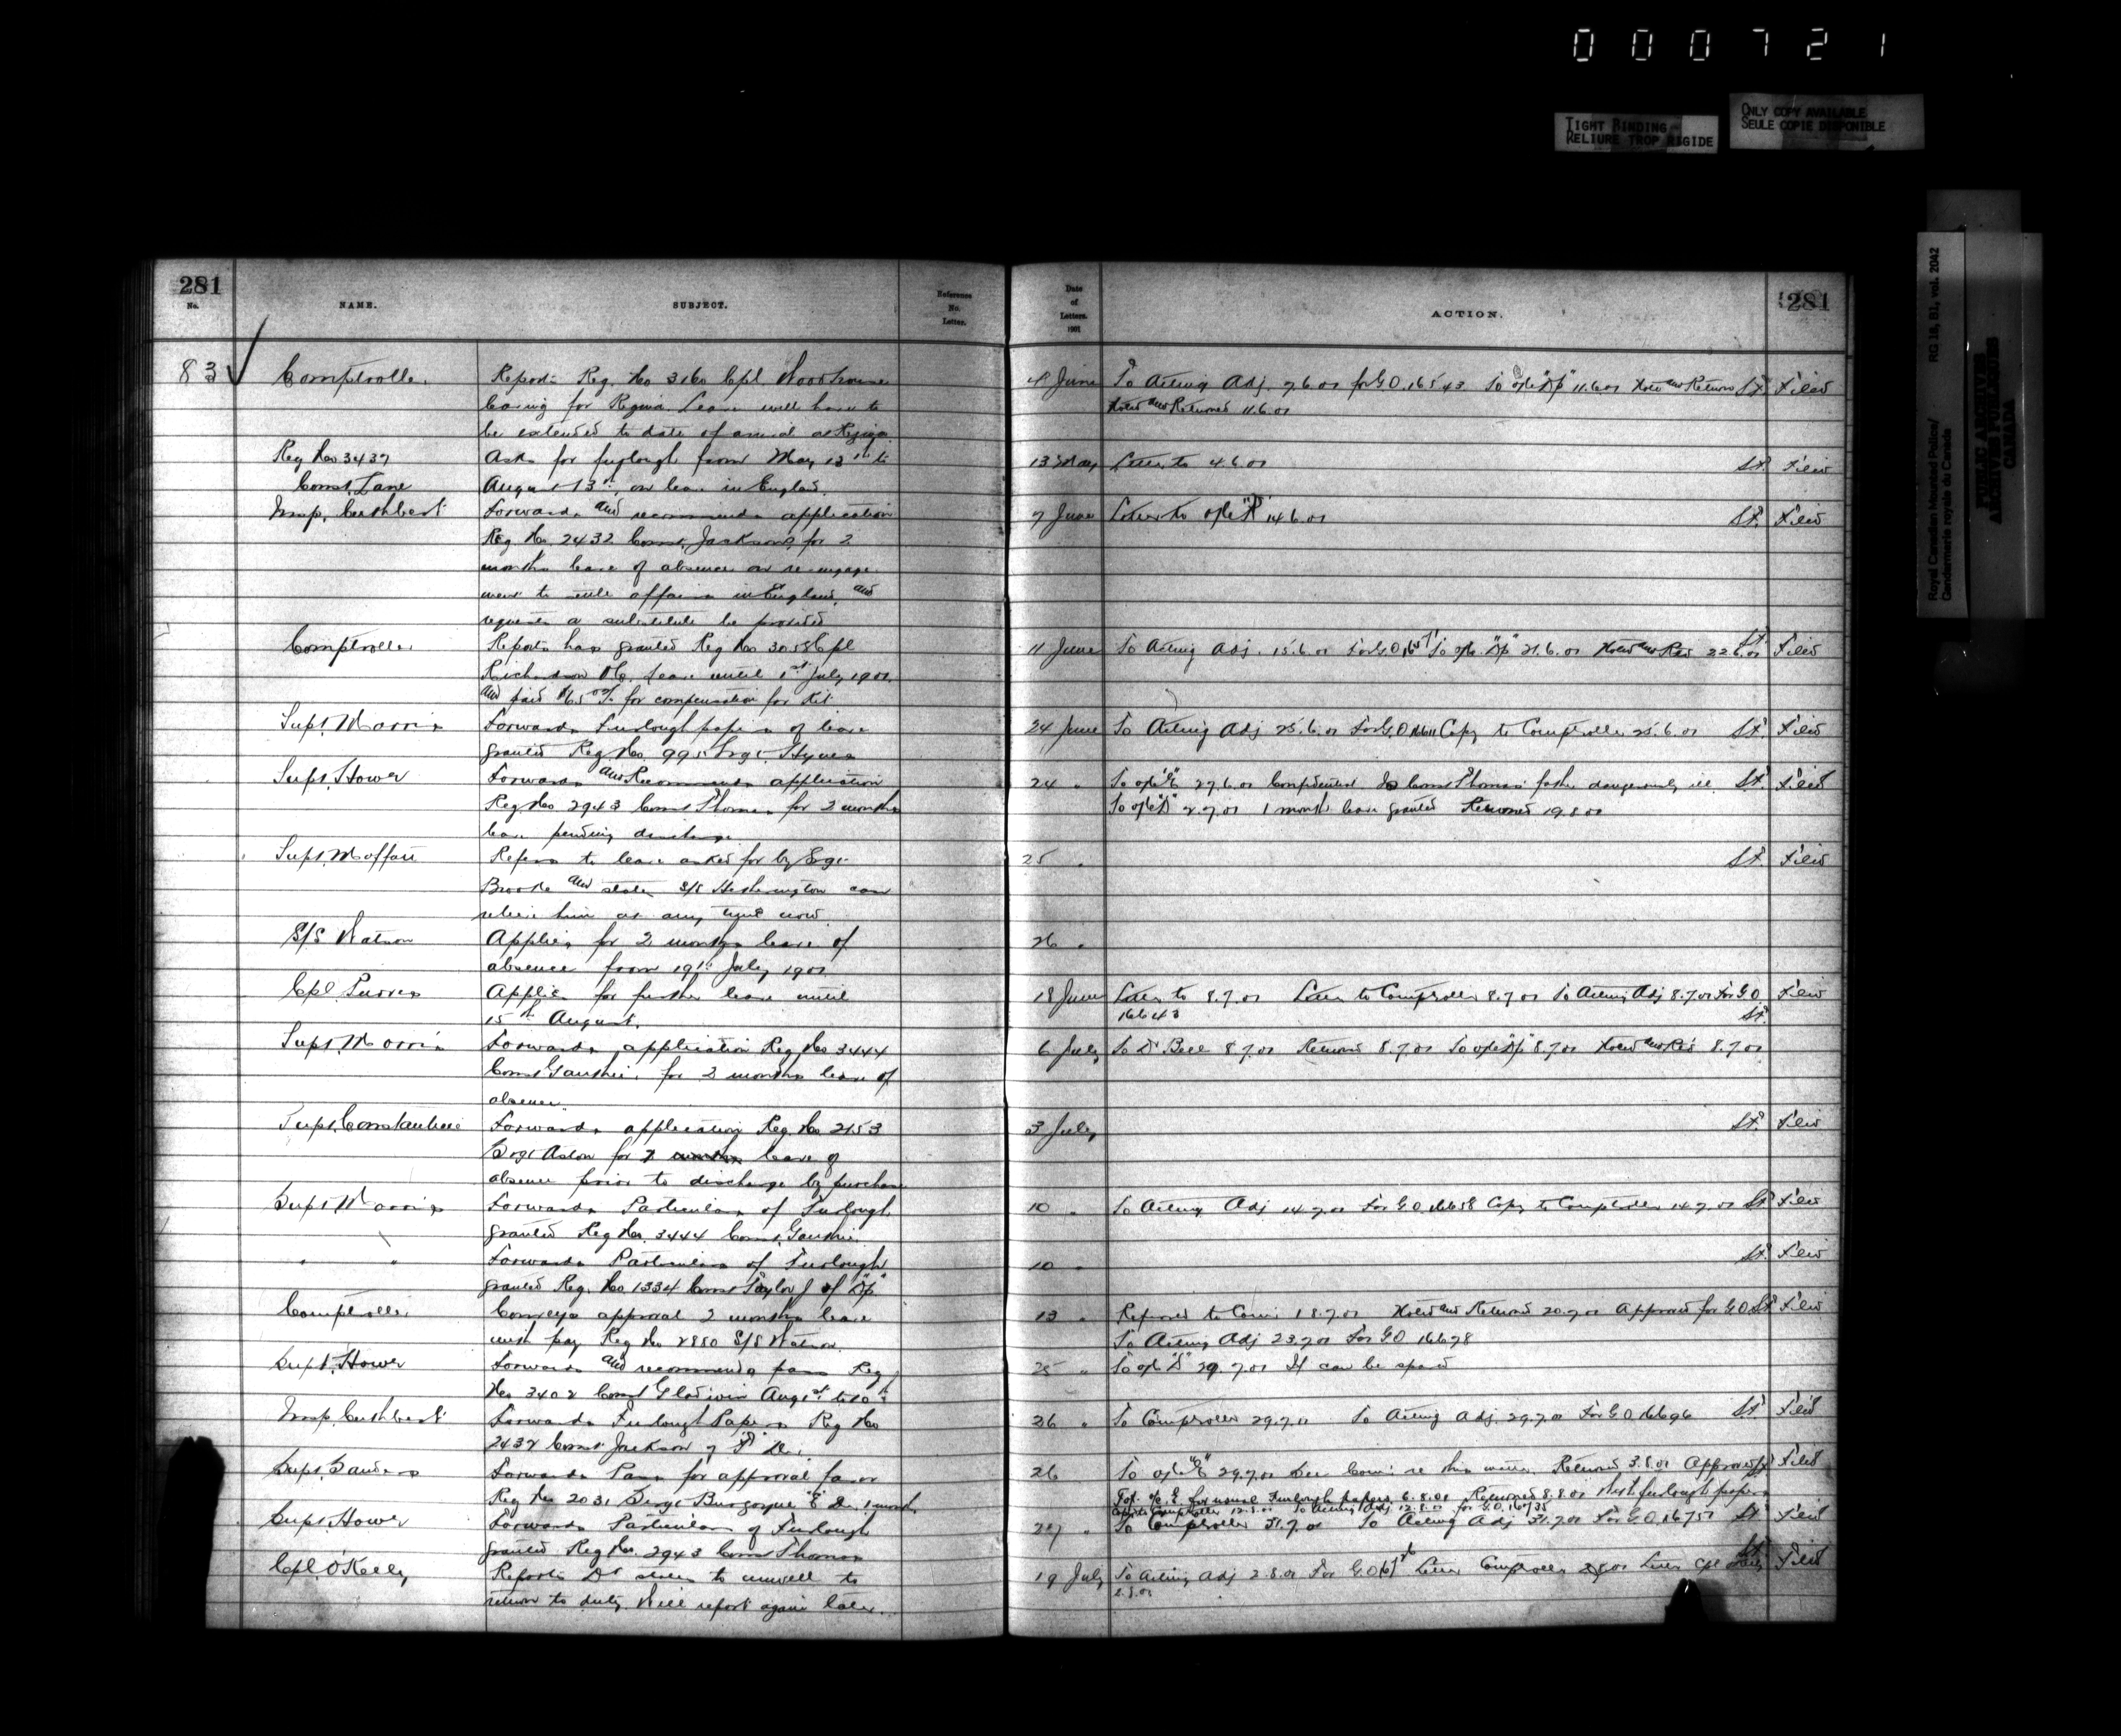 000721
TIGHT BINDING
RELIURE TROP RIGIDE
ONLY COPY AVAILABLE
SEULE COPIE DISPONIBLE
Royal Canadian Mounted Police/
Gendarmerie royale du Canada
RG 18, B1, vol. 2042
PUBLIC ARCHIVES
ARCHIVES PUBLIQUES
CANADA
281
No.
NAME.
SUBJECT.
Reference
No.
Letter.
Date
of
Letters.
1901
ACTION.
281
83
Comptroller
Reports Reg. No 3160 Cpl. Woodhouse
leaving for Regina. Leave will have to
be extended to date of arrival at Regina.
4 June
To Acting Adj. 7.6.01 for G.O. 16543 To o/c "Dp" 11.6.01 Noted and Return
St. Filed
Noted and Returned 11.6.01
Reg No 3437
Const. Lane
Asks for furlough from May 13th to
August 13th, on leave in England.
13 May
Letter to 4.6.01
St. Filed
Insp. Cuthbert
Forwards and recommends application
Reg. No. 2432 Const. Jackson, for 2
months leave of absence on re-engage
ment to settle affairs in England, and
requests a substitute be provided
7 June
Letter to o/c 14.6.01
St. Filed
Comptroller
Reports has granted Reg No 3058 Cpl
Richardson leave until 1st July 1901.
and paid for compensation for kit.
11 June
To Acting Adj. 15.6.01 For G.O. To o/c "Dp" 21.6.01 Noted and Red 22.6.01
St. Filed
Supt. Morris
Forwards Furlough papers of leave
granted Reg. No. 995 Sergt. Hynes
24 June
To Acting Adj 25.6.01 For G.O. 16611 Copy to Comptroller 25.6.01
St. Filed
Supt. Howe
Forwards and Recommends application
Reg. No 2943 Const Thomas for 2 months
leave pending discharge
24 "
To o/c "E" 27.6.01 Confidential Is Const Thomas' father dangerously ill.
St. Filed
To o/c 2.7.01 1 month leave granted Returned 19.8.01
Supt. Moffatt
Refers to leave asked for by Sergt
Brooke and states S/S Hetherington can
relieve him at any time now.
25 "
St. Filed
S/S Watson
Applies for 2 months leave of
absence from 19th July 1901.
26 "
Cpl. Purves
Applies for further leave until
15th August.
18 June
Letter to 8.7.01 Letter to Comptroller 8.7.01 To Acting Adj 8.7.01 For G.O.
16643
St.
Filed
Supt. Morris
Forwards application Reg No 3444
Const Gauthier for 2 months leave of
absence.
6 July
To Dr Bell 8.7.01 Returned 8.7.01 To o/c "Dp" 8.7.01 Noted and Red 8.7.01
Supt. Constantine
Forwards application Reg. No. 2153
Sergt for leave of
absence prior to discharge by purchase
3 July
St. Filed
Supt Morris
Forwards Particulars of Furlough
granted Reg No. 3444 Const. Gauthier
10 "
To Acting Adj 14.7.01 For G.O. 16658 Copy to Comptroller 14.7.01
St. Filed
" "
Forwards Particulars of Furlough
granted Reg. No 1334 Const Taylor J of "Dp"
10 "
St. Filed
Comptroller
Conveys approval 2 months leave
with pay Reg No 2880 S/S Watson.
13 "
Referred to Comr 18.7.01 Noted and Returned 20.7.01 Approved for G.O.
St. Filed
To Acting Adj 23.7.01 For GO 16678
Supt. Howe
Forwards and recommends pass Reg
No 3402 Const Gladwin Aug 1st to 10th
25 "
To o/c 29.7.01 If can be spared
Insp. Cuthbert
Forwards Furlough Papers Reg No
2432 Const Jackson
26 "
To Comptroller 29.7.01 To Acting Adj. 29.7.01 For G.O. 16696
St. Filed
Supt Sanders
Forwards Pass for approval favor
Reg No 2031 Sergt Burgoyne "E" Dn. 1 month
26
To o/c "E" 29.7.01 See Comr re this matter. Returned 3.8.01 Approved
St. Filed
To o/c E for usual Furlough papers 6.8.01 Returned 8.8.01 with furlough papers
Comptroller 12.8.01 To Acting Adj 12.8.01 for G.O. 16735
Supt. Howe
Forwards Particulars of Furlough
granted Reg No. 2943 Const Thomas
27 "
To Comptroller 31.7.01 To Acting Adj 31.7.01 For G.O.
St. Filed
Cpl. O'Kelly
Reports Dr states to unwell to
return to duty. Will report again later.
19 July
To Acting Adj 2.8.01 For G.O. Letter Comptroller Letter Cpl
2.8.01
St. Filed